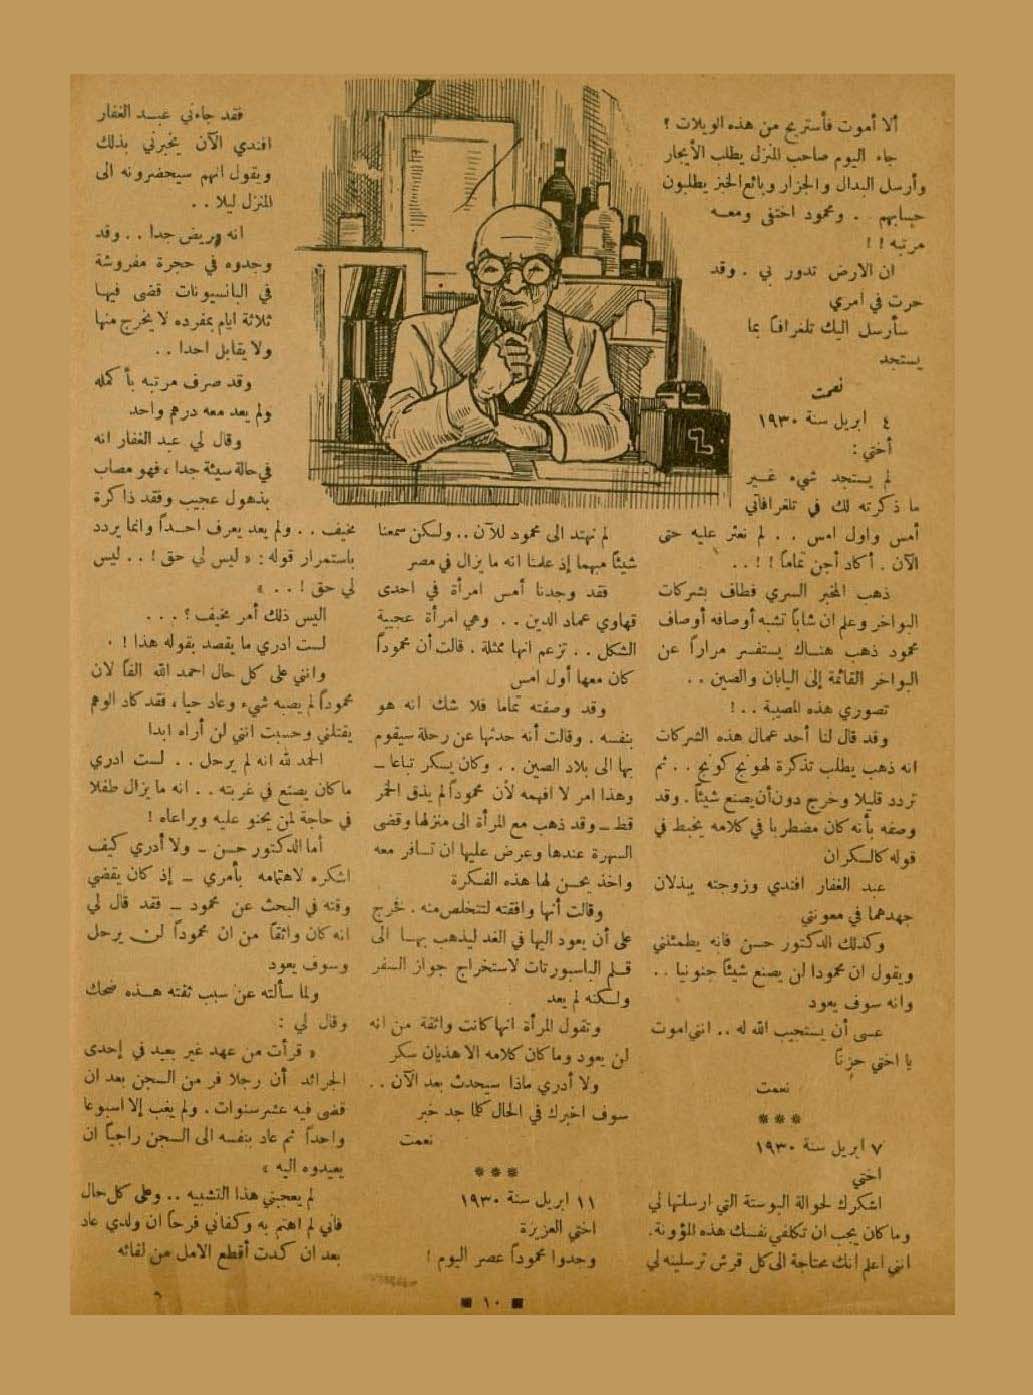 ألا أموت فأستريح من هذه الويلات ؟
جاء اليوم صاحب المنزل يطلب الأيجار
وأرسل البدال والجزار وبائع الخبز يطلبون
حسابهم . . ومحمود اختفى ومعه
مرتبه ! !
ان الارض تدور بي . وقد
حرت في أمري
سأرسل اليك تلغرافاً بما
يستجد
نعمت
٤ ابريل سنة ١٩٣٠
أختي :
لم يستجد شيء غير
ما ذكرته لك في تلغرافاتي
أمس واول امس . . لم نعثر عليه حتى
الآن . أكاد أجن تماماً ! ! . .
ذهب المخبر السري فطاف بشركات
البواخر وعلم ان شاباً تشبه أوصافه أوصاف
محمود ذهب هناك يستفسر مراراً عن
البواخر القائمة إلى اليابان والصين . .
تصوري هذه المصيبة . . !
وقد قال لنا أحد عمال هذه الشركات
انه ذهب يطلب تذكرة لهونج كونج . . ثم
تردد قليلا وخرج دون أن يصنع شيئاً . وقد
وصفه بأنه كان مضطربا في كلامه يخبط في
قوله كالسكران
عبد الغفار افندي وزوجته يبذلان
جهدهما في معونتي
وكذلك الدكتور حسن فانه يطمئنني
ويقول ان محمودا لن يصنع شيئاً جنونيا . .
وانه سوف يعود
عسى أن يستجيب الله له . . انني اموت
يا اختي حزناً
نعمت
***
٧ ابريل سنة ١٩٣٠
اختي
اشكرك لحوالة البوستة التي ارسلتها لي
وما كان يجب ان تكلفي نفسك هذه المؤونة .
انني اعلم أنك محتاجة الى كل قرش ترسلينه لي
لم نهتد الى محمود للآن . . ولكن سمعنا
شيئاً مبهما إذ علمنا انه ما يزال في مصر
فقد وجدنا أمس امرأة في احدى
قهاوي عماد الدين . . وهي امرأة عجيبة
الشكل . . تزعم انها ممثلة . قالت أن محموداً
كان معها أول امس
وقد وصفته تماما فلا شك انه هو
بنفسه . وقالت أنه حدثها عن رحلة سيقوم
بها الى بلاد الصين . . وكان يسكر تباعا ــ
وهذا امر لا افهمه لأن محموداً لم يذق الخمر
قط ــ وقد ذهب مع المرأة الى منزلها وقضى
السهرة عندها وعرض عليها ان تسافر معه
واخذ يحسن لها هذه الفكرة
وقالت أنها وافقته لتتخلص منه . فخرج
على أن يعود اليها في الغد ليذهب بها الى
قلم الباسبورتات لاستخراج جواز السفر
ولكنه لم يعد
وتقول المرأة انها كانت واثقة من انه
لن يعود وما كان كلامه الا هذيان سكر
ولا أدري ماذا سيحدث بعد الآن . .
سوف اخبرك في الحال كلما جد خبر
نعمت
***
١١ ابريل سنة ١٩٣٠
اختي العزيزة
وجدوا محموداً عصر اليوم !
فقد جاءني عبد الغفار
افندي الآن يخبرني بذلك
ويقول انهم سيحضرونه الى
المنزل ليلا . .
انه مريض جدا . . وقد
وجدوه في حجرة مفروشة
في البانسيونات قضى فيها
ثلاثة ايام بمفرده لا يخرج منها
ولا يقابل احدا . .
وقد صرف مرتبه بأكمله
ولم يعد معه درهم واحد
وقال لي عبد الغفار انه
في حالة سيئة جدا ، فهو مصاب
بذهول عجيب وفقد ذاكرة
مخيف . . ولم يعد يعرف احداً وانما يردد
باستمرار قوله : « ليس لي حق ! . . ليس
لي حق ! . . »
اليس ذلك أمر مخيف ؟ . . .
لست ادري ما يقصد بقوله هذا ! .
وانني على كل حال احمد الله الفاً لان
محموداً لم يصبه شيء وعاد حيا ، فقد كاد الوهم
يقتلني وحسبت انني لن أراه ابدا
الحمد لله انه لم يرحل . . لست ادري
ما كان يصنع في غربته . . انه ما يزال طفلا
في حاجة لمن يحنو عليه ويراعاه !
أما الدكتور حسن ــ ولا أدري كيف
اشكره لاهتمامه بأمري ــ إذ كان يقضي
وقته في البحث عن محمود ــ فقد قال لي
انه كان واثقاً من ان محموداً لن يرحل
وسوف يعود
ولما سألته عن سبب ثقته هذه ضحك
وقال لي :
« قرأت من عهد غير بعيد في إحدى
الجرائد أن رجلا فر من السجن بعد ان
قضى فيه عشر سنوات . ولم يغب إلا اسبوعا
واحداً ثم عاد بنفسه الى السجن راجياً ان
يعيدوه اليه »
لم يعجبني هذا التشبيه . . وعلى كل حال
فاني لم اهتم به وكفاني فرحاً ان ولدي عاد
بعد ان كدت أقطع الامل من لقائه
■ ١٠ ■